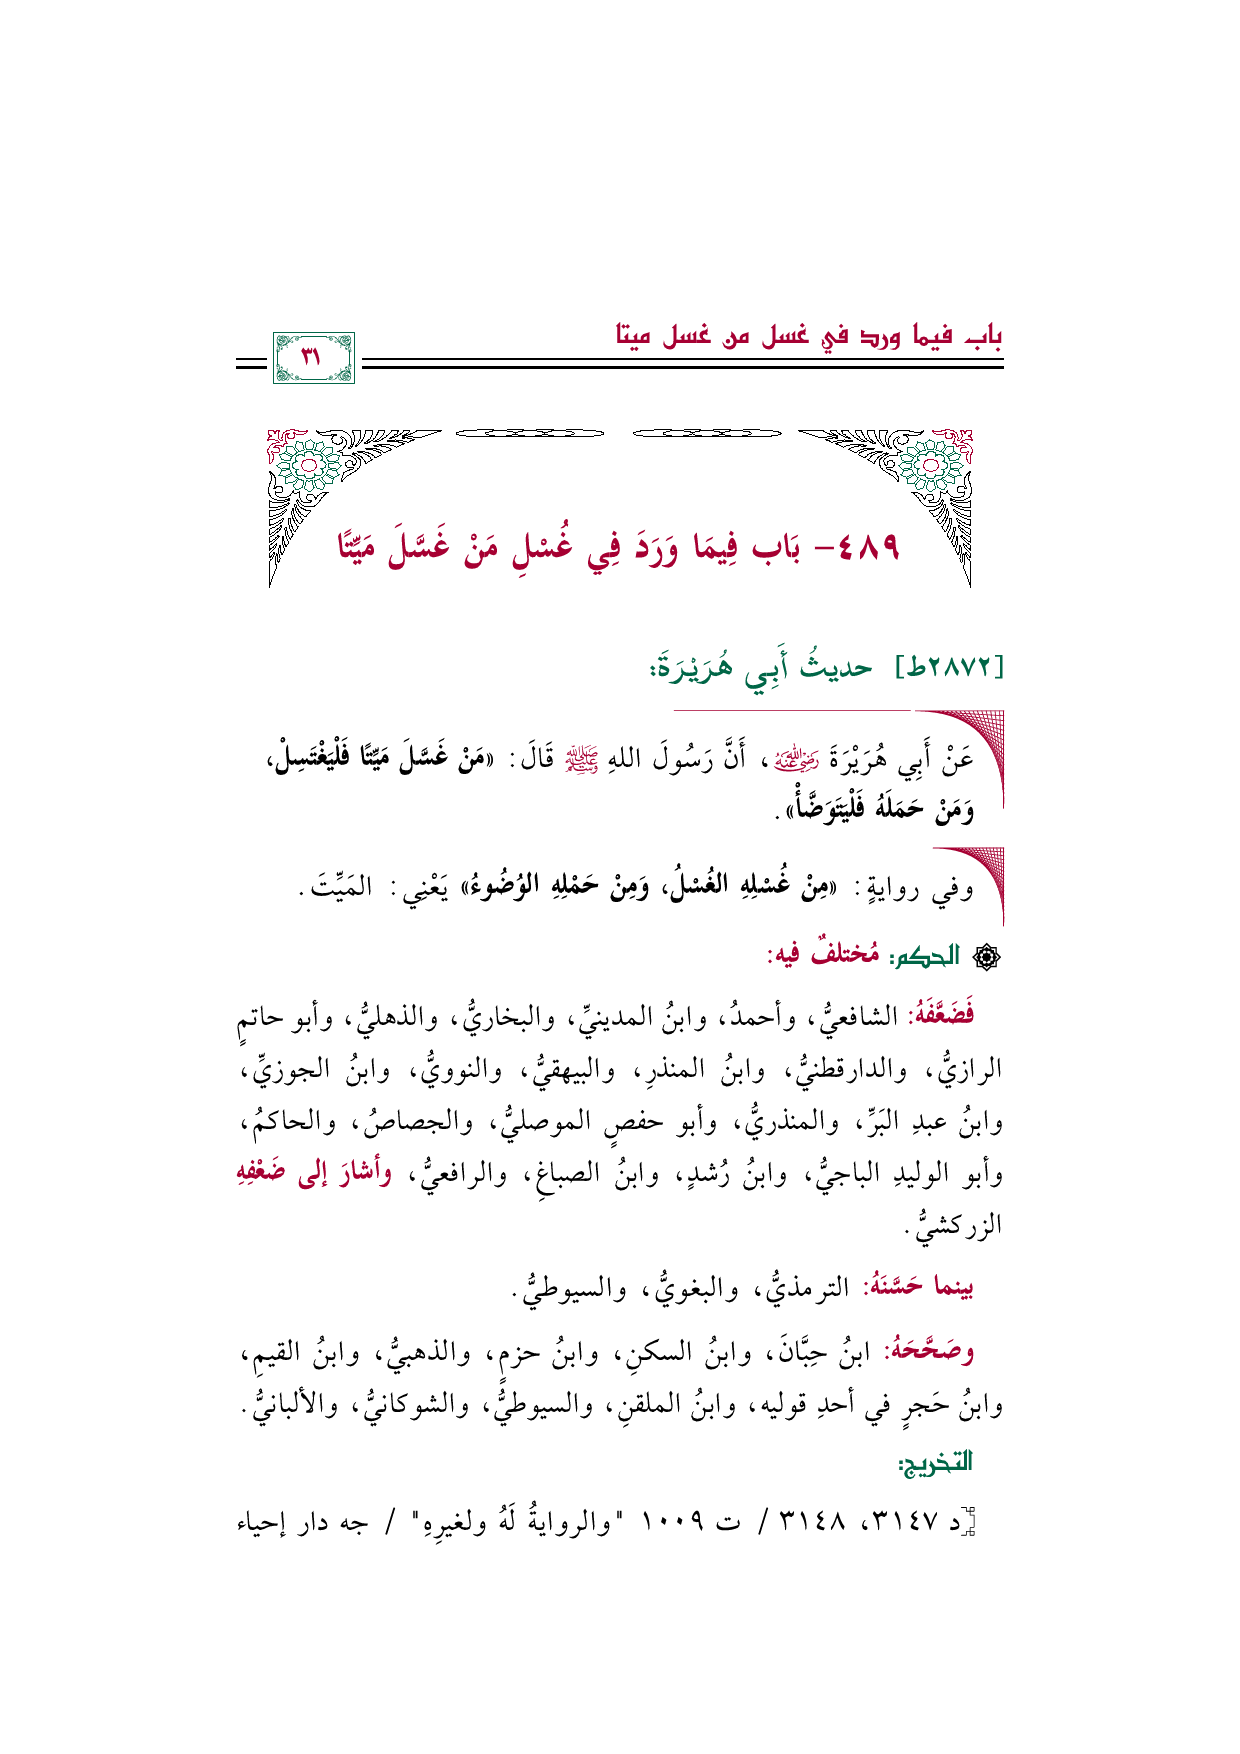 باب فيما ورد في غسل من غسل ميتا
٣١
٤٨٩- بَاب فِيمَا وَرَدَ فِي غُسْلِ مَنْ غَسَّلَ مَيِّتًا
[٢٨٧٢ط] حديثُ أَبِي هُرَيْرَةَ:
عَنْ أَبِي هُرَيْرَةَ رضي الله عنه، أَنَّ رَسُولَ اللهِ ﷺ قَالَ: «مَنْ غَسَّلَ مَيِّتًا فَلْيَغْتَسِلْ،
وَمَنْ حَمَلَهُ فَلْيَتَوَضَّأْ».
وفي روايةٍ: «مِنْ غُسْلِهِ الغُسْلُ، وَمِنْ حَمْلِهِ الوُضُوءُ» يَعْنِي: المَيِّتَ.
الحكم: مُختلفٌ فيه:
فَضَعَّفَهُ: الشافعيُّ، وأحمدُ، وابنُ المدينيِّ، والبخاريُّ، والذهليُّ، وأبو حاتمٍ
الرازيُّ، والدارقطنيُّ، وابنُ المنذرِ، والبيهقيُّ، والنوويُّ، وابنُ الجوزيِّ،
وابنُ عبدِ البَرِّ، والمنذريُّ، وأبو حفصٍ الموصليُّ، والجصاصُ، والحاكمُ،
وأبو الوليدِ الباجيُّ، وابنُ رُشدٍ، وابنُ الصباغِ، والرافعيُّ، وأشارَ إلى ضَعْفِهِ
الزركشيُّ.
بينما حَسَّنَهُ: الترمذيُّ، والبغويُّ، والسيوطيُّ.
وصَحَّحَهُ: ابنُ حِبَّانَ، وابنُ السكنِ، وابنُ حزمٍ، والذهبيُّ، وابنُ القيمِ،
وابنُ حَجرٍ في أحدِ قوليه، وابنُ الملقنِ، والسيوطيُّ، والشوكانيُّ، والألبانيُّ.
التخريج:
[د ٣١٤٧، ٣١٤٨ / ت ١٠٠٩ "والروايةُ لَهُ ولغيرِهِ" / جه دار إحياء